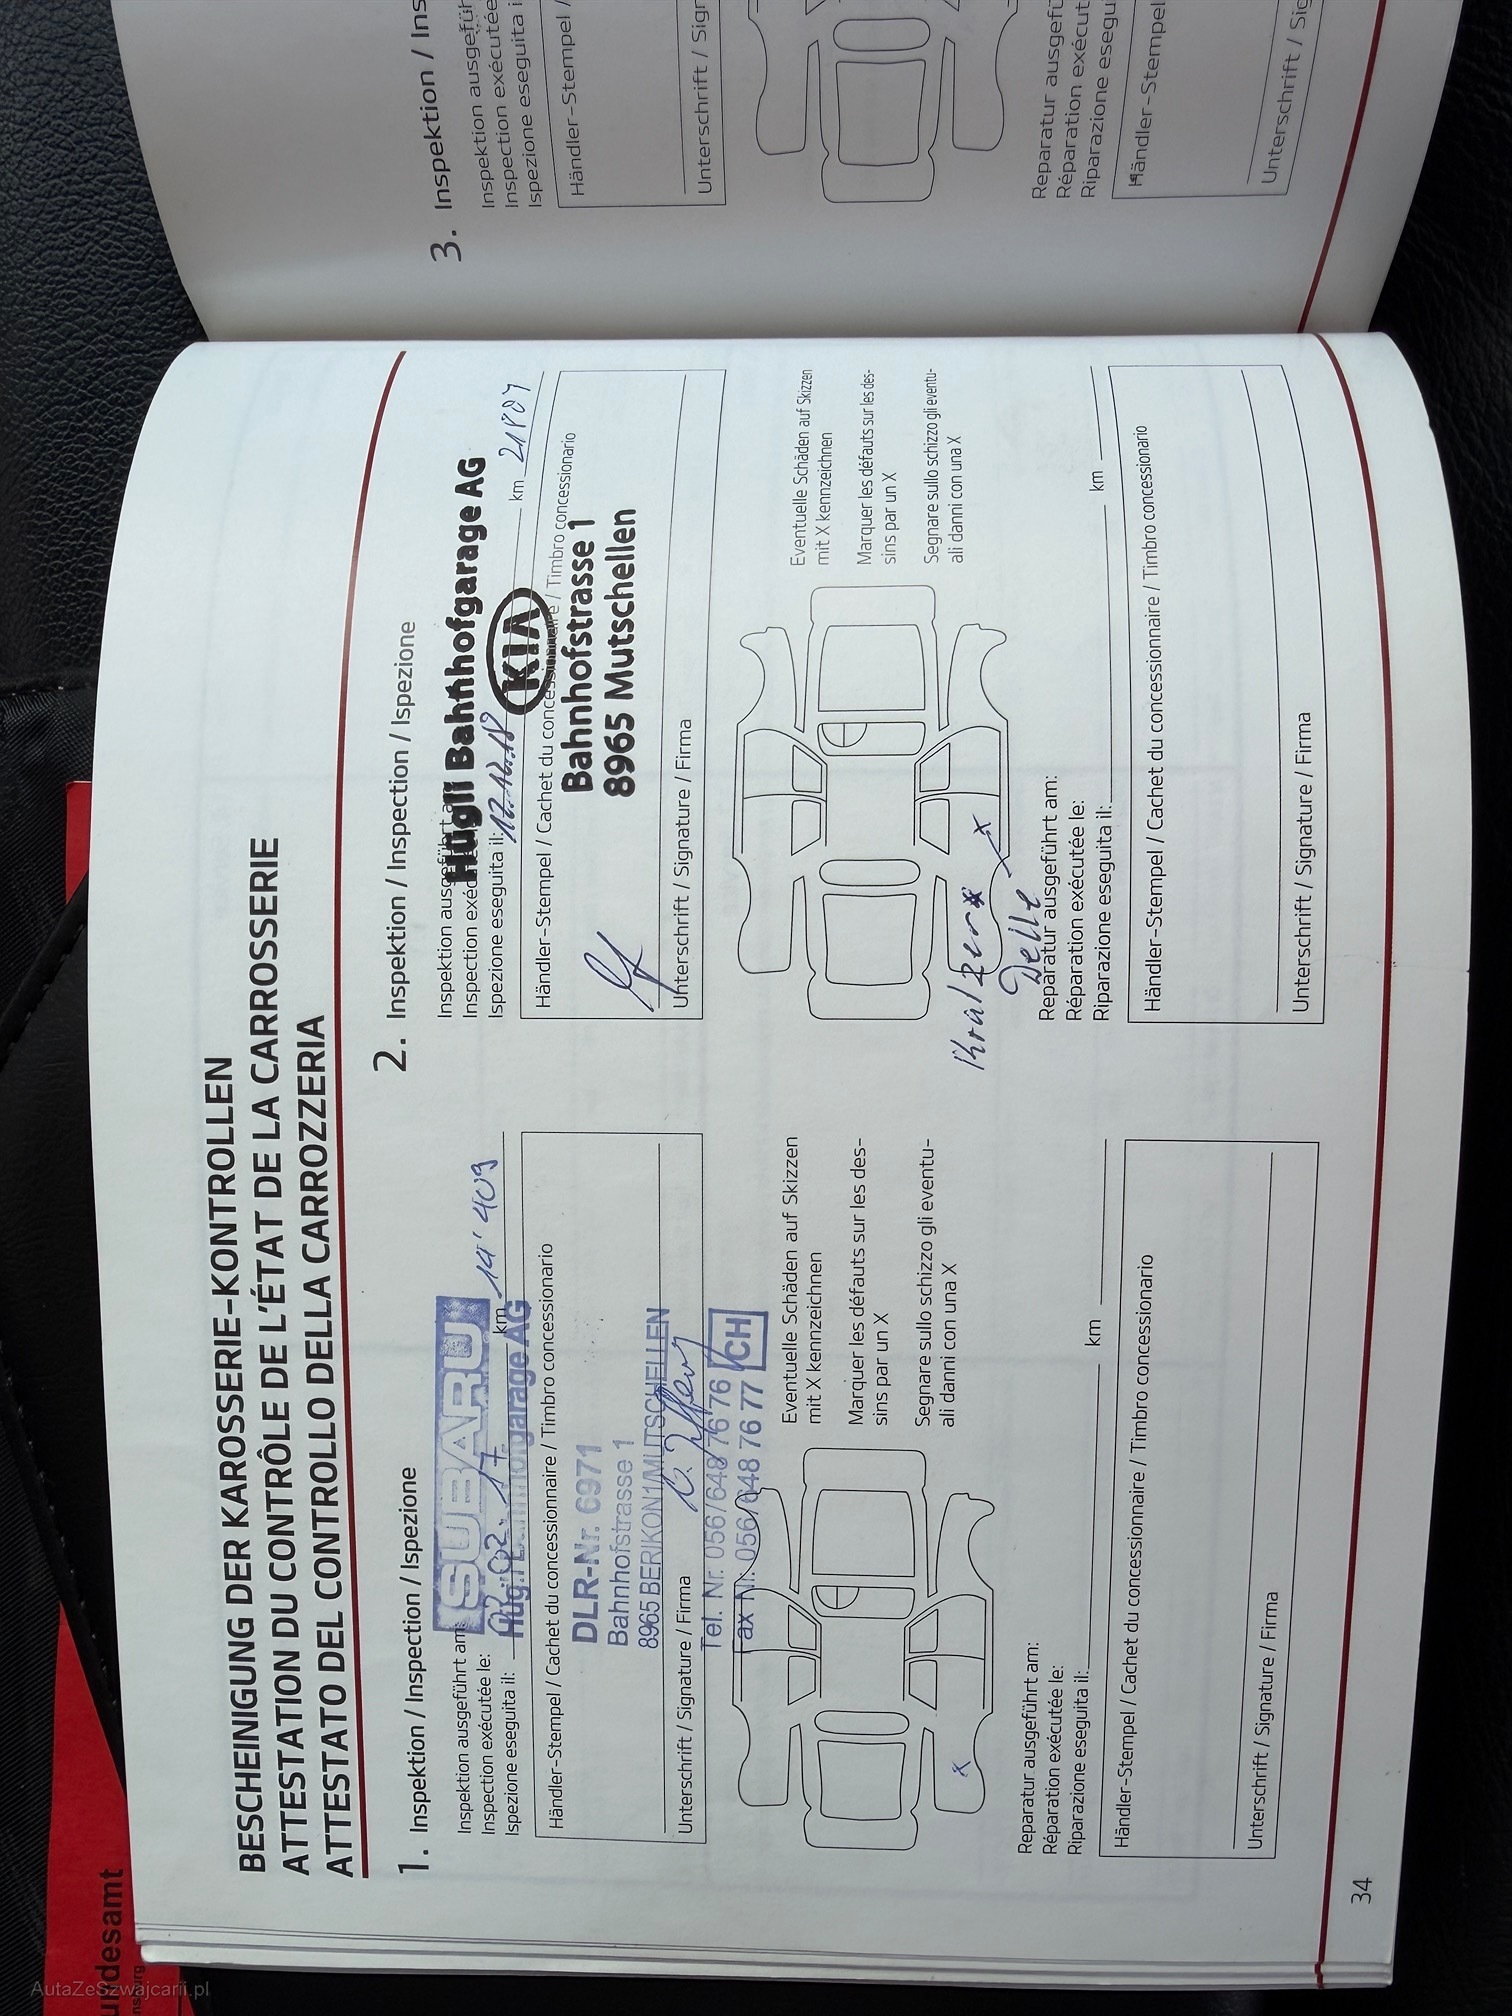 BESCHEINIGUNG DER KAROSSERIE-KONTROLLEN
ATTESTATION DU CONTRÔLE DE L'ÉTAT DE LA CARROSSERIE
ATTESTATO DEL CONTROLLO DELLA CARROZZERIA
1. Inspektion / Inspection / Ispezione
Inspektion ausgeführt am:
Inspection exécutée le:
Ispezione eseguita il:
km 14'409
SUBARU
Hügli Bahnhofgarage AG
Händler-Stempel / Cachet du concessionnaire / Timbro concessionario
DLR-Nr. 6971
Bahnhofstrasse 1
8965 BERIKON1/MUTSCHELLEN
Unterschrift / Signature / Firma
Tel. Nr. 056/648 76 76
Fax Nr. 056/648 76 77 CH
Eventuelle Schäden auf Skizzen
mit X kennzeichnen
Marquer les défauts sur les des-
sins par un X
Segnare sullo schizzo gli eventu-
ali danni con una X
x
Reparatur ausgeführt am:
Réparation exécutée le:
Riparazione eseguita il:
km
Händler-Stempel / Cachet du concessionnaire / Timbro concessionario
Unterschrift / Signature / Firma
34
2. Inspektion / Inspection / Ispezione
Hügli Bahnhofgarage AG
Inspektion ausgeführt am:
Inspection exécutée le:
Ispezione eseguita il: 17.12.18
km 21807
KIA
Händler-Stempel / Cachet du concessionnaire / Timbro concessionario
Bahnhofstrasse 1
8965 Mutschellen
Unterschrift / Signature / Firma
Eventuelle Schäden auf Skizzen
mit X kennzeichnen
Marquer les défauts sur les des-
sins par un X
Segnare sullo schizzo gli eventu-
ali danni con una X
Kratzer x
Delle x
Reparatur ausgeführt am:
Réparation exécutée le:
Riparazione eseguita il:
km
Händler-Stempel / Cachet du concessionnaire / Timbro concessionario
Unterschrift / Signature / Firma
3. Inspektion / Ins
Inspektion ausgefüh
Inspection exécutée
Ispezione eseguita i
Händler-Stempel /
Unterschrift / Sigr
Reparatur ausgefü
Réparation exécut
Riparazione esegu
Händler-Stempel
Unterschrift / Sig
undesamt
AutaZeSzwajcarii.pl